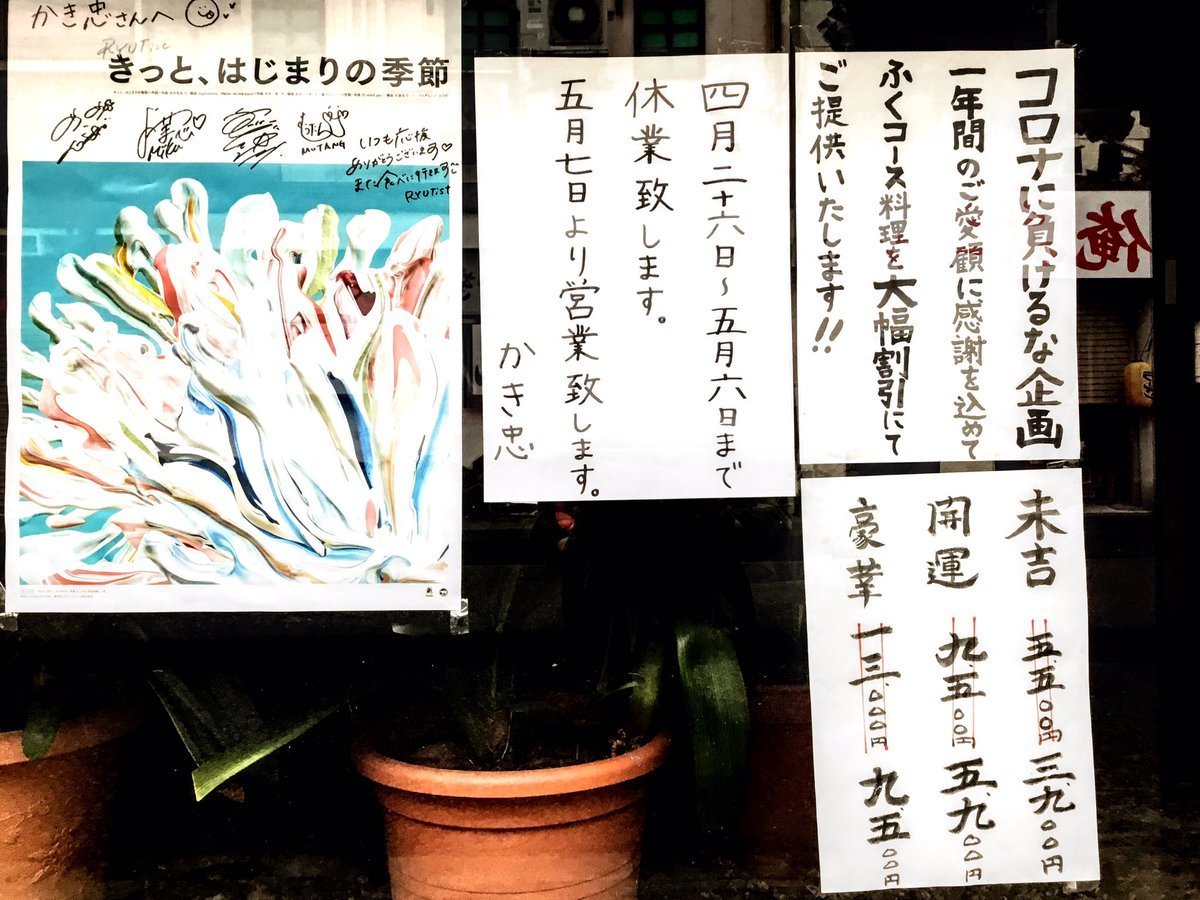 かき忠さんへ
RYUTist
きっと、はじまりの季節
MIKU
MUTANG
いつも応援
ありがとうございます♡
また食べに行きます
RYUTist
四月二十六日～五月六日まで
休業致します。
五月七日より営業致します。
かき忠
コロナに負けるな企画
一年間のご愛顧に感謝を込めて
ふくコース料理を大幅割引にて
ご提供いたします!!
俺
末吉 五.五〇〇円 三.九〇〇円
開運 九.五〇〇円 五.九〇〇円
豪華 一三.〇〇〇円 九.五〇〇円